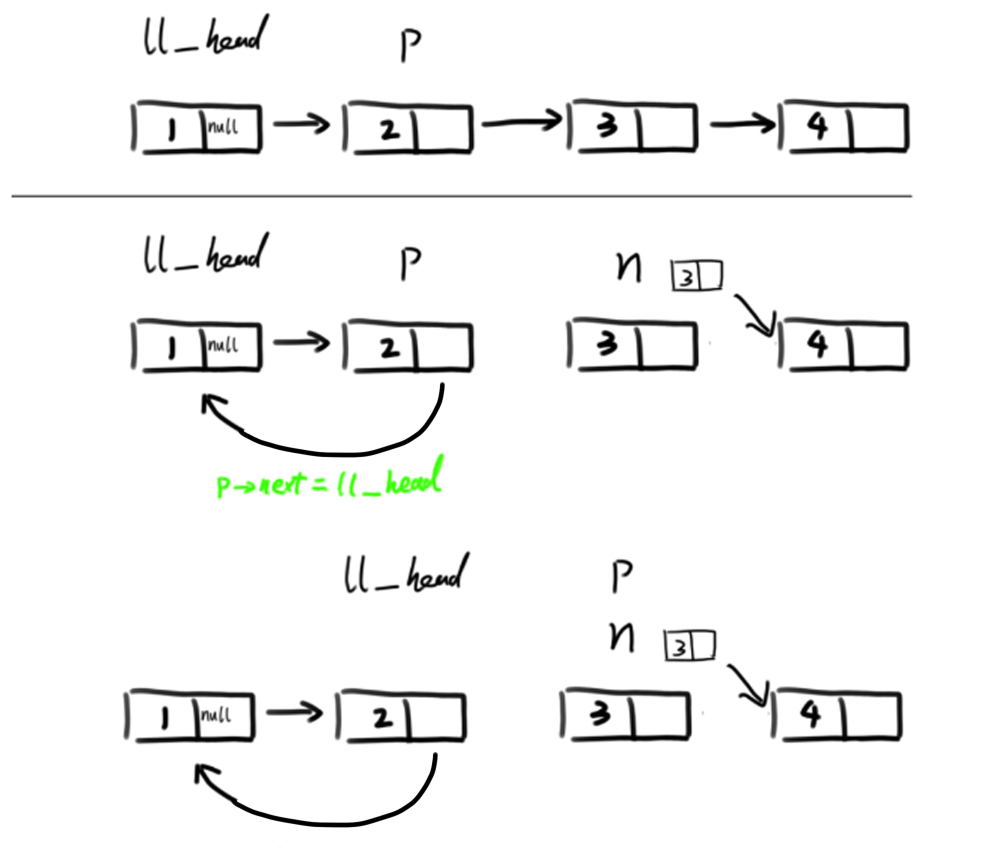 ll_head p
1 null 2 3 4
ll_head p n 3
1 null 2 3 4
p→next = ll_head
ll_head p
n 3
1 null 2 3 4